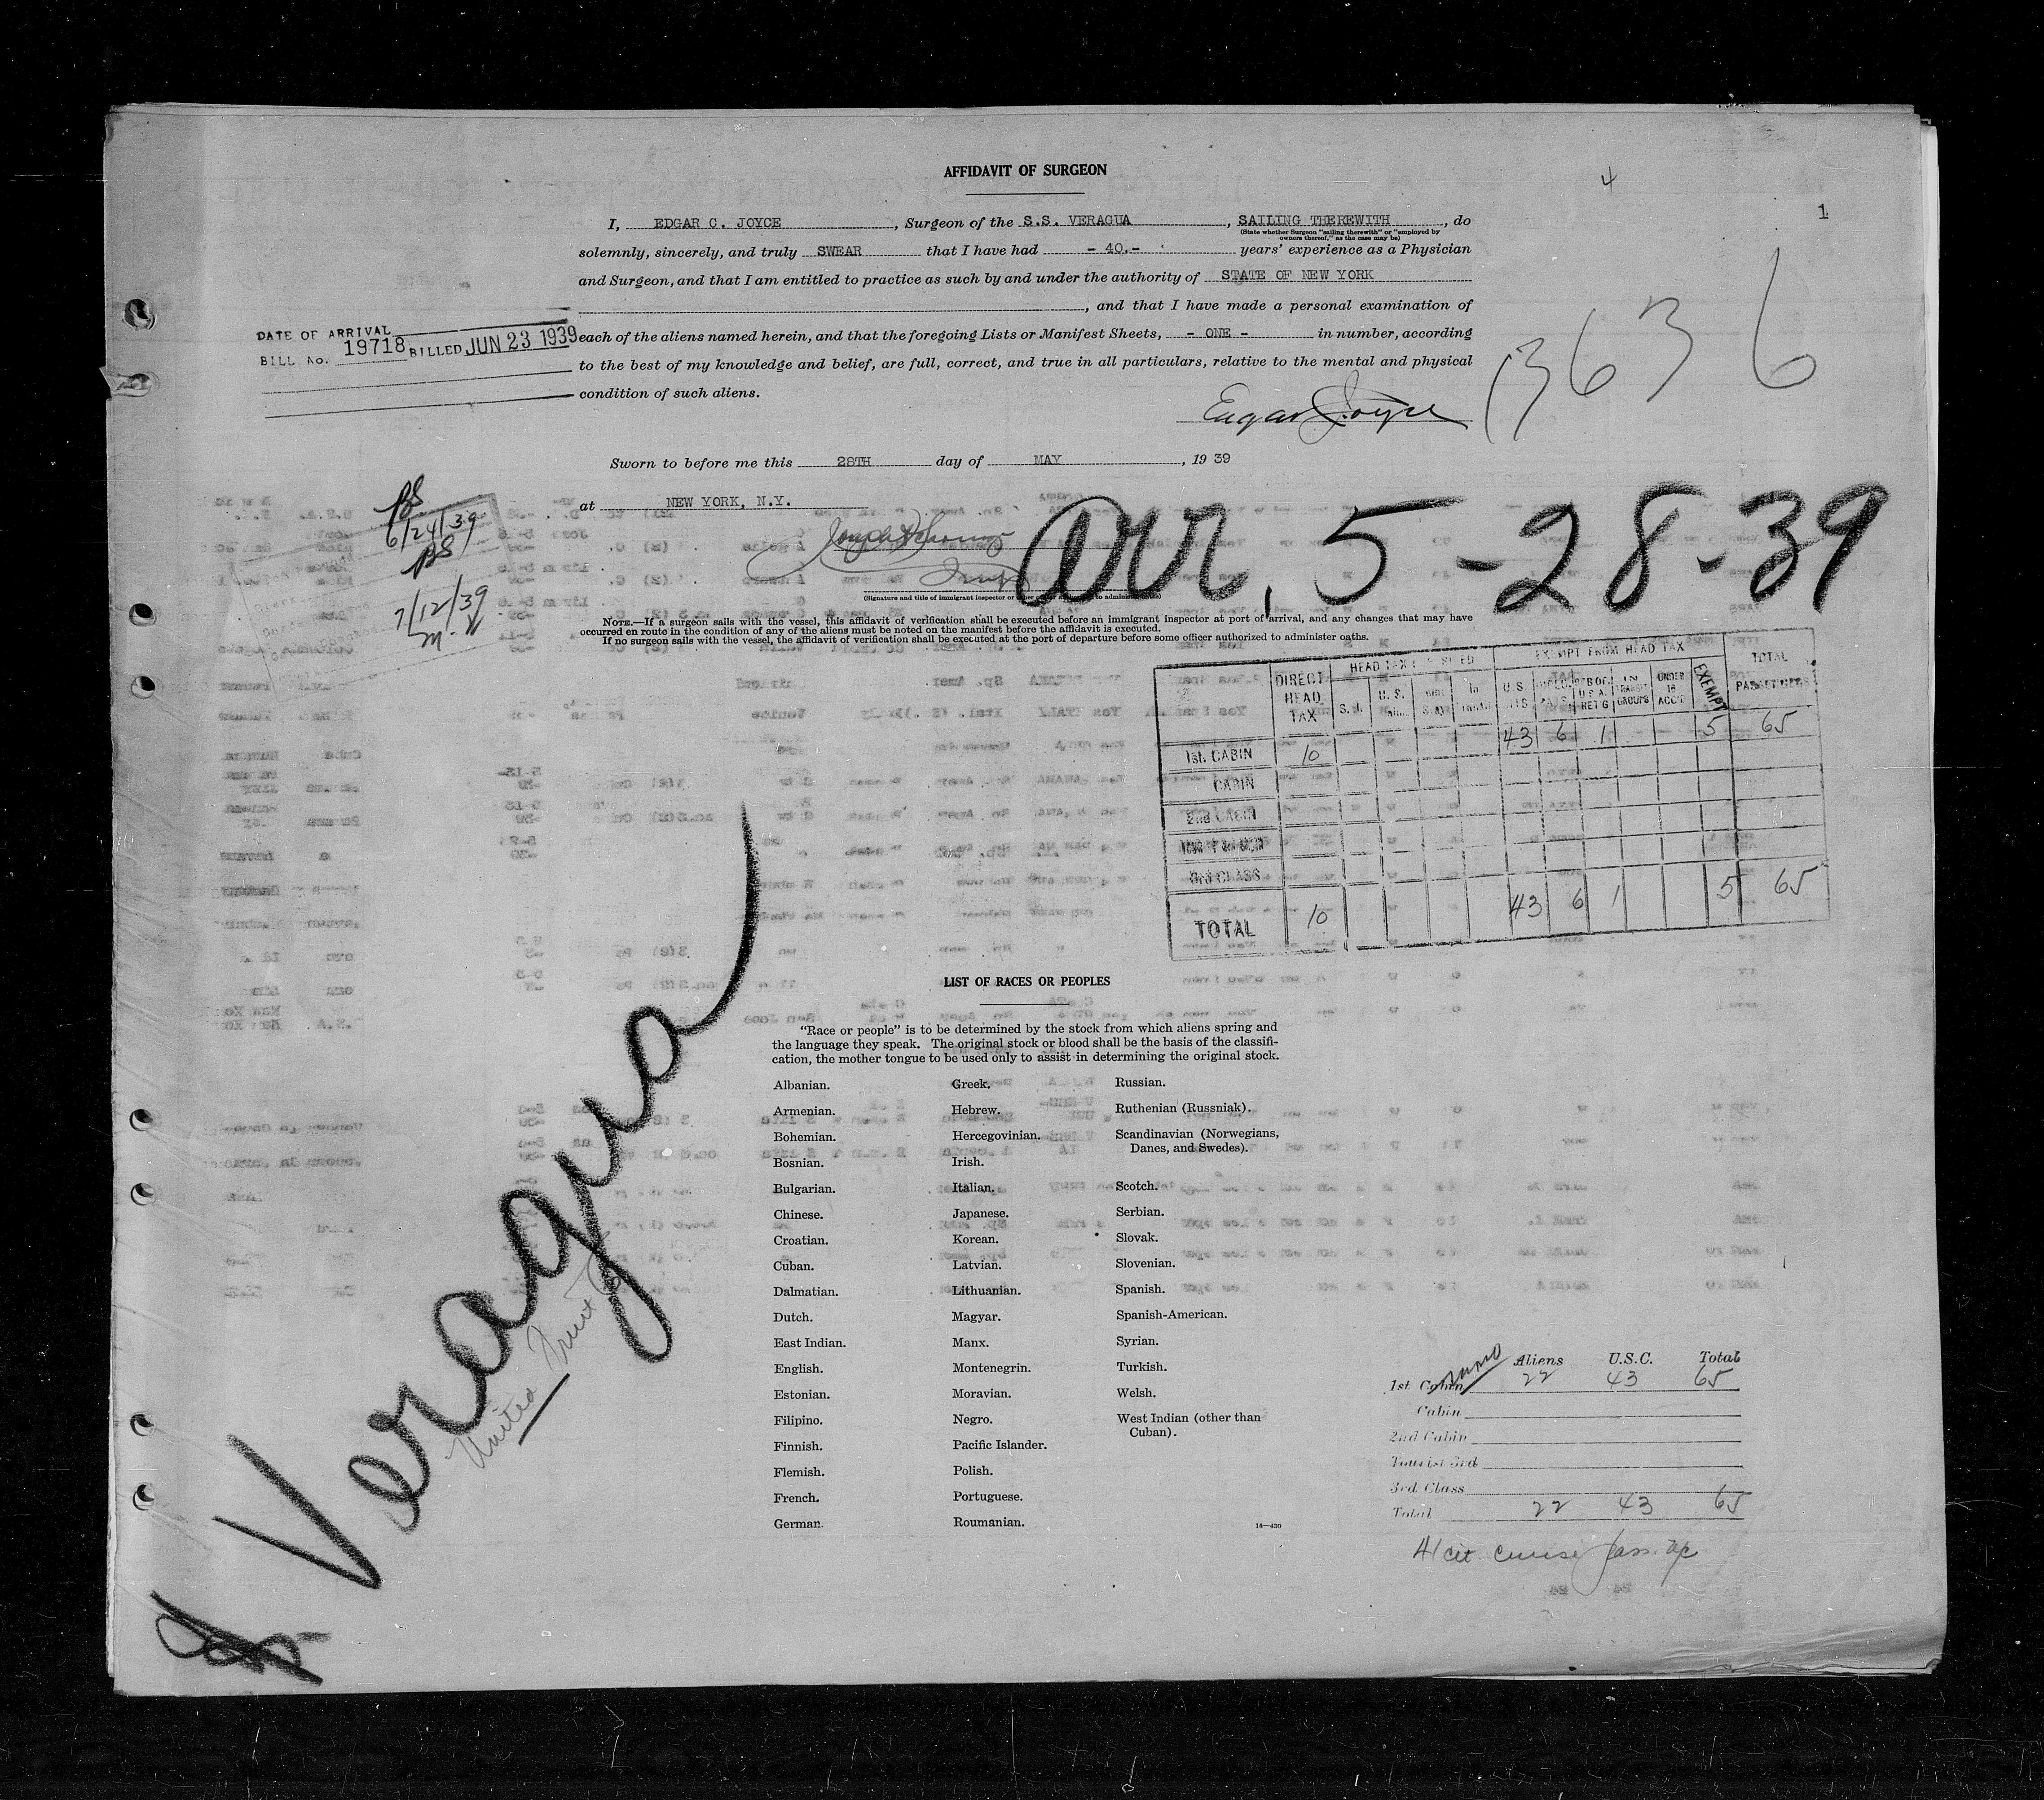 AFFIDAVIT OF SURGEON
4
1
I, EDGAR C. JOYCE, Surgeon of the S.S. VERAGUA, SAILING THEREWITH, do
(State whether Surgeon "sailing therewith" or "employed by
owners thereof," as the case may be)
solemnly, sincerely, and truly SWEAR that I have had - 40.- years' experience as a Physician
and Surgeon, and that I am entitled to practice as such by and under the authority of STATE OF NEW YORK
, and that I have made a personal examination of
each of the aliens named herein, and that the foregoing Lists or Manifest Sheets, - ONE - in number, according
to the best of my knowledge and belief, are full, correct, and true in all particulars, relative to the mental and physical
condition of such aliens.
DATE OF ARRIVAL
BILL No. 19718 BILLED JUN 23 1939
Edgar Joyce
Sworn to before me this 28TH day of MAY, 1939
at NEW YORK, N.Y.
6/24/39
7/12/39
Arr. 5-28-39
(Signature and title of immigrant inspector or
NOTE.—If a surgeon sails with the vessel, this affidavit of verification shall be executed before an immigrant inspector at port of arrival, and any changes that may have
occurred en route in the condition of any of the aliens must be noted on the manifest before the affidavit is executed.
If no surgeon sails with the vessel, the affidavit of verification shall be executed at the port of departure before some officer authorized to administer oaths.
EXEMPT FROM HEAD TAX
DIRECT HEAD TAX
U.S.
UNDER 16 ACC'T
EXEMPT
TOTAL PASSENGERS
1st. CABIN 10 43 6 1 5 65
CABIN
2nd CABIN
3rd CLASS
TOTAL 10 43 6 1 5 65
Veragua
United Fruit Co
LIST OF RACES OR PEOPLES
"Race or people" is to be determined by the stock from which aliens spring and
the language they speak. The original stock or blood shall be the basis of the classifi-
cation, the mother tongue to be used only to assist in determining the original stock.
Albanian.
Armenian.
Bohemian.
Bosnian.
Bulgarian.
Chinese.
Croatian.
Cuban.
Dalmatian.
Dutch.
East Indian.
English.
Estonian.
Filipino.
Finnish.
Flemish.
French.
German.
Greek.
Hebrew.
Hercegovinian.
Irish.
Italian.
Japanese.
Korean.
Latvian.
Lithuanian.
Magyar.
Manx.
Montenegrin.
Moravian.
Negro.
Pacific Islander.
Polish.
Portuguese.
Roumanian.
Russian.
Ruthenian (Russniak).
Scandinavian (Norwegians,
Danes, and Swedes).
Scotch.
Serbian.
Slovak.
Slovenian.
Spanish.
Spanish-American.
Syrian.
Turkish.
Welsh.
West Indian (other than
Cuban).
14—430
Aliens U.S.C. Total
1st. Cabin 22 43 65
Cabin
2nd Cabin
Tourist 3rd
3rd Class
Total 22 43 65
41 cit cruise pass.